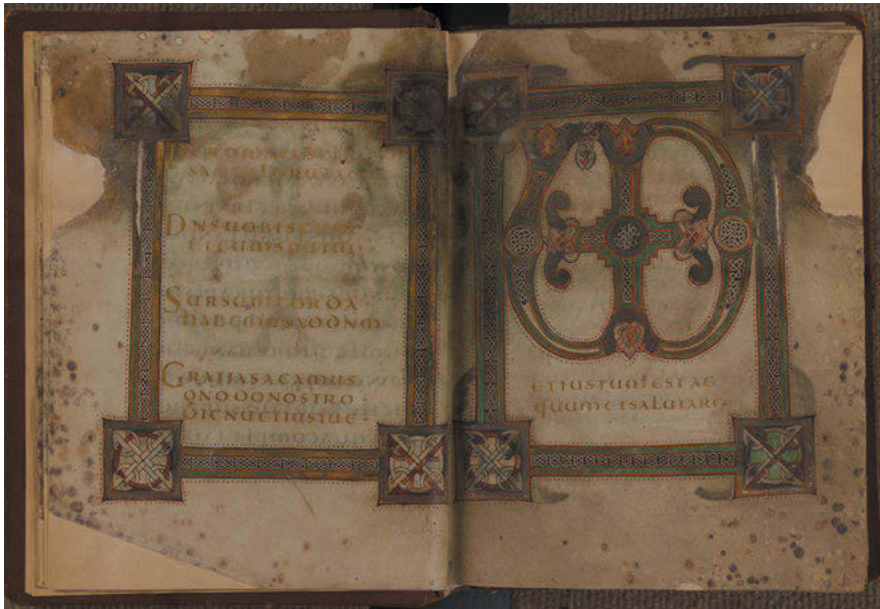 PER OMNIA
SAECULORUM
DNS UOBISCUM
ET CUM SPU TUO
SURSUM CORDA
HABEMUS AD DNM
GRATIAS AGAMUS
DNO DO NOSTRO
DIGNU ET IUSTU E
ET IUSTUM EST AE
QUUM ET SALUTARE